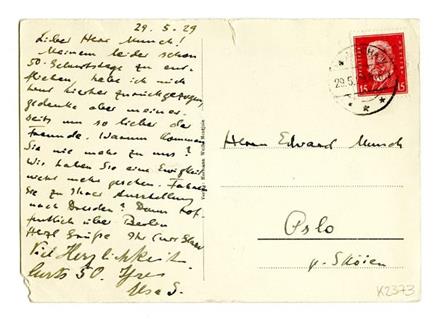 29.5.29
Lieber Herr Munch!
Meinem leider schon
50. Geburtstage zu ent-
fliehen, habe ich mich
hierher zurückgezogen,
gedenke aber meiner-
seits um so lieber der
Freunde. Warum kommen
Sie nie mehr zu uns?
Wir haben Sie eine Ewigkeit
nicht mehr gesehen. Fahren
Sie zu Ihrer Ausstellung
nach Dresden? Dann hof-
fentlich über Berlin
Herzl Grüße Ihr Curt Glaser
Viel Herzlichkeit
Curts 50. Ihre
Elsa G.
29.5.
15 15
Herrn Edvard Munch
Oslo
p. Sköien
K2373